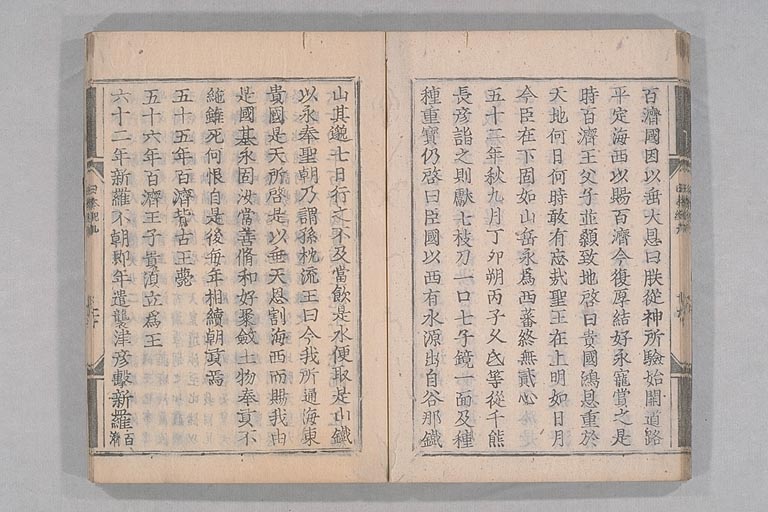 百濟國因以垂大恩曰朕從神所驗始開道路
平定海西以賜百濟今復厚結好永寵賞之是
時百濟王父子並顙致地啓曰貴國鴻恩重於
天地何日何時敢有忘哉聖王在上明如日月
今臣在下固如山岳永爲西蕃終無貳心
五十二年秋九月丁卯朔丙子久氐等從千熊
長彦詣之則獻七枝刀一口七子鏡一面及種
種重寶仍啓曰臣國以西有水源出自谷那鐵
山其邈七日行之不及當飮是水便取是山鐵
以永奉聖朝乃謂孫枕流王曰今我所通海東
貴國是天所啓是以垂天恩割海西而賜我由
是國基永固汝當善脩和好聚斂土物奉貢不
絶雖死何恨自是後每年相續朝貢焉
五十五年百濟肖古王薨
五十六年百濟王子貴須立爲王
六十二年新羅不朝即年遣襲津彦擊新羅百濟